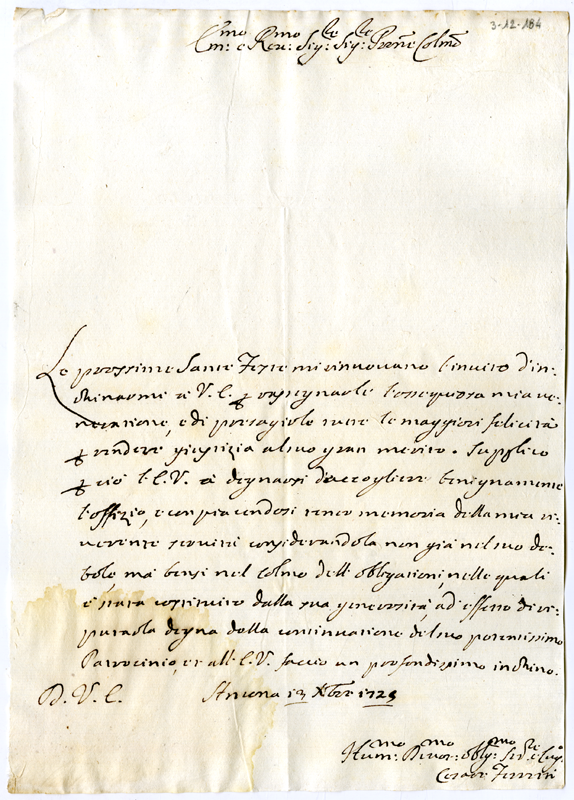 3-12-184
Em:mo e Reu:mo Sig:re Sig:re Prone Colmo
Le prossime Sante Feste mi rinnouano l'inuito d'in-
chinarmi à V. E. p consegnarle l'ossequiosa mia ue-
nerazione, e di presagirle tutte le maggiori felicità
p rendere giustizia al suo gran merito. Supplico
p ciò l'E.V. à degnarsi d'accogliere benignamente
l'offizio, e compiacendosi tener memoria della mia ri-
uerente seruitù considerandola non già nel suo de-
bole mà bensì nel colmo dell'obligazioni, nelle quali
è stata costituita dalla sua generosità, ad effetto di re-
putarla degna della continuazione del suo potentissimo
Patrocinio, et all'E.V. faccio un profondissimo inchino.
D. V. E. Ancona 13 Xbre 172
Hum:mo Deuot:mo Oblig:mo Ser:re
Cesare Ferretti